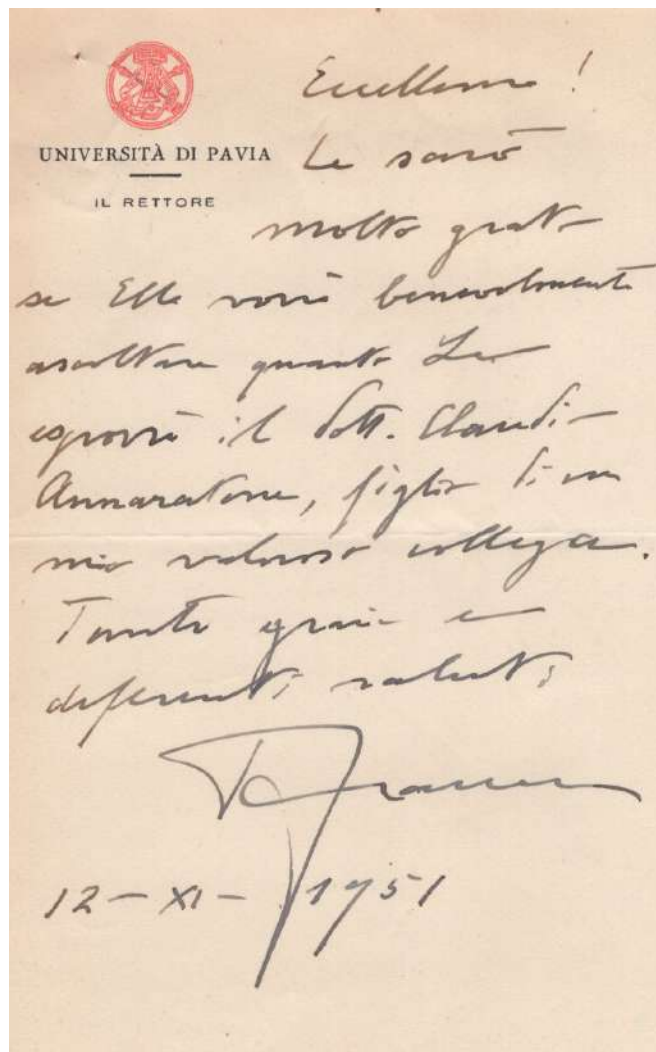 UNIVERSITÀ DI PAVIA
IL RETTORE
Eccellenza!
Le sarò
molto grato
se Ella vorrà benevolmente
ascoltare quanto Le
esporrà il Dott. Claudio
Annaratone, figlio di un
mio valoroso collega.
Tante grazie e
deferenti saluti
12-XI-1951